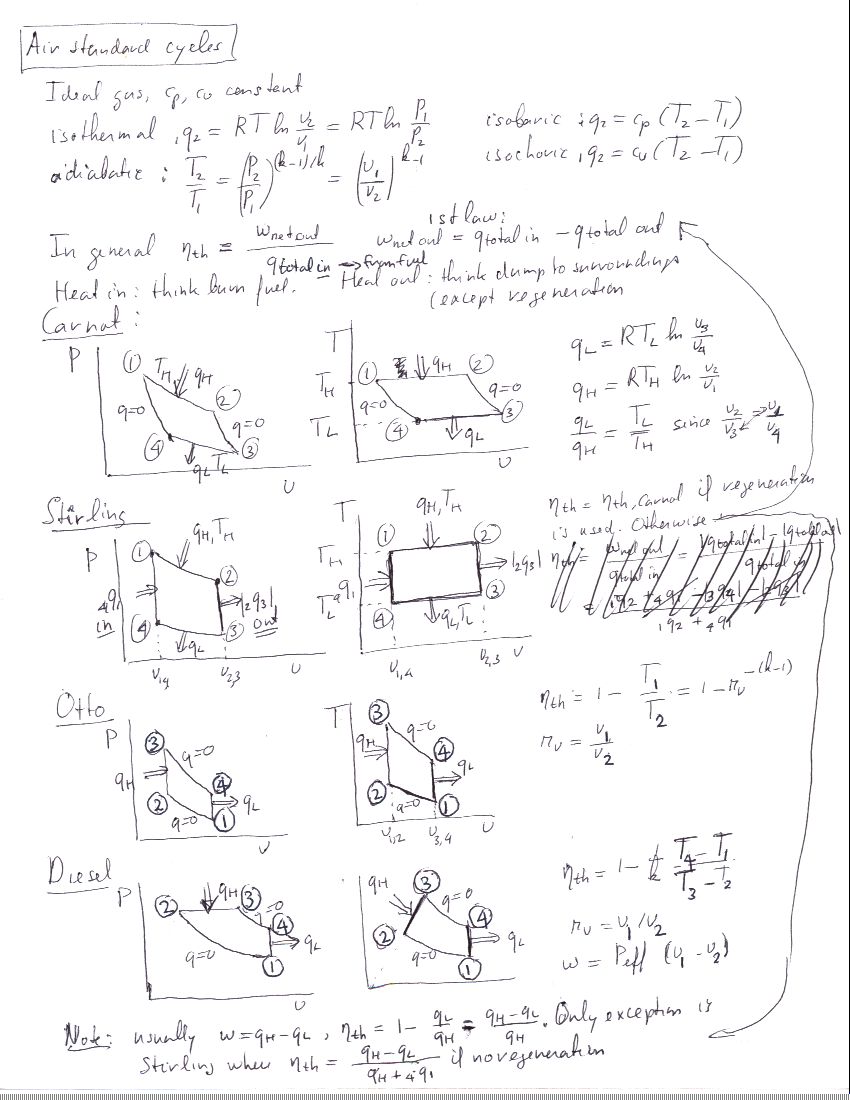 Air standard cycles
Ideal gas, cp, cv constant
isothermal 1q2 = RT ln v2/v1 = RT ln P1/P2
isobaric 1q2 = cp (T2 - T1)
isochoric 1q2 = cv (T2 - T1)
adiabatic : T2/T1 = (P2/P1)^(k-1)/k = (v1/v2)^k-1
1st law:
In general ηth = wnet out / qtotal in → from fuel
wnet out = qtotal in - qtotal out
Heat in: think burn fuel. Heat out: think dump to surroundings
(except regeneration
Carnot:
P
① TH qH
②
q=0
q=0
④
③
qL TL
v
T
TH
TL
① qH ②
q=0
q=0
④
③
qL
v
qL = RTL ln v3/v4
qH = RTH ln v2/v1
qL/qH = TL/TH since v2/v3 = v1/v4
Stirling
P
①
qH, TH
②
4q1
in
|2q3|
out
④
③
qL
v1,4
v2,3
v
T
qH, TH
TH
TL
①
②
4q1
|2q3|
④
③
qL, TL
v1,4
v2,3
v
ηth = ηth, Carnot if regeneration
is used. Otherwise
ηth = wnet out / qtotal in = |qtotal in| - |qtotal out| / qtotal in
= 1q2 + 4q1 - |3q4| - |2q3| / 1q2 + 4q1
Otto
P
③
q=0
qH
②
④
qL
q=0
①
v
T
③
q=0
qH
④
qL
②
q=0
①
v1,2
v3,4
v
ηth = 1 - T1/T2 = 1 - rv^-(k-1)
rv = v1/v2
Diesel
P
②
qH
③
q=0
④
qL
q=0
①
v
qH
③
q=0
②
④
qL
q=0
①
ηth = 1 - 1/k T4 - T1 / T3 - T2
rv = v1/v2
w = Peff (v1 - v2)
Note: usually w = qH - qL, ηth = 1 - qL/qH = qH - qL / qH. Only exception is
Stirling when ηth = qH - qL / qH + 4q1 if no regeneration